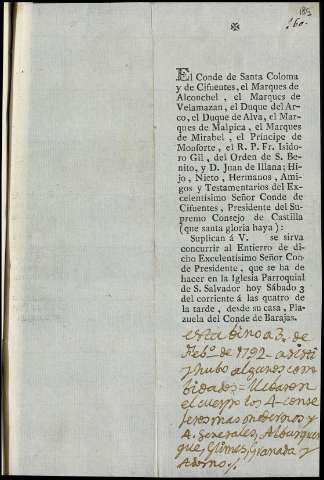 183
160.
El Conde de Santa Coloma
y de Cifuentes, el Marques de
Alconchel, el Marques de
Velamazan, el Duque del Ar-
co, el Duque de Alva, el Mar-
ques de Malpica, el Marques
de Mirabel, el Príncipe de
Monforte, el R. P. Fr. Isido-
ro Gil, del Orden de S. Be-
nito, y D. Juan de Illana; Hi-
jo, Nieto, Hermanos, Ami-
gos y Testamentarios del Ex-
celentísimo Señor Conde de
Cifuentes, Presidente del Su-
premo Consejo de Castilla
(que santa gloria haya):
Suplican á V. se sirva
concurrir al Entierro de di-
cho Excelentísimo Señor Con-
de Presidente, que se ha de
hacer en la Iglesia Parroquial
de S. Salvador hoy Sábado 3
del corriente á las quatro de
la tarde, desde su casa, Pla-
zuela del Conde de Barajas.
esta bino a 3,, de
Feb.º de 1792 - asisti
y hubo algunos com
bidados = llebaron
el cuerpo los 4 conse
jeros mas modernos y
4. Generales, Alburquer
que, Gimes, Granada y
Adorno,,